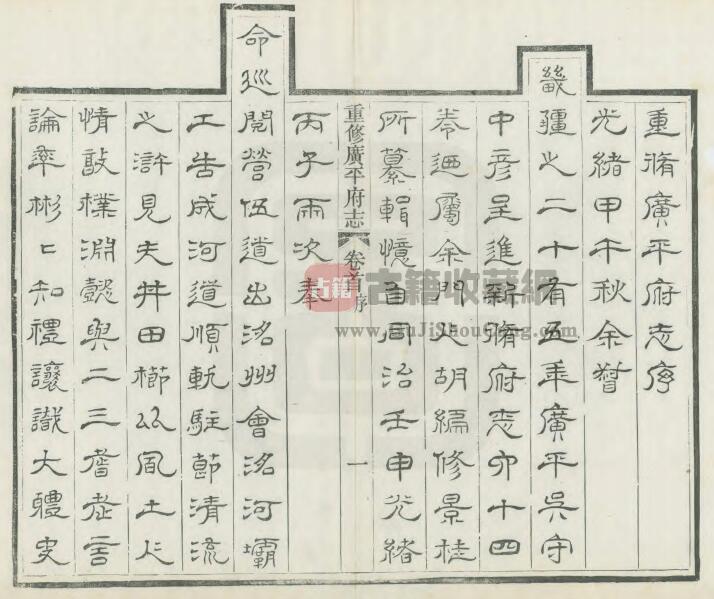 重脩廣平府志序
光緒甲午秋余督
畿疆之二十有五年廣平吳守
中彥呈進新脩府志六十四
卷迺屬余門人胡編修景桂
所纂輯憶自同治壬申光緒
重修廣平府志 卷首序 一
丙子兩次奉
命巡閱營伍道出洺州會洺河壩
工告成河道順軌駐節清流
之滸見夫井田櫛比風土人
情敦樸淵懿與二三耆老言
論率彬〻知禮讓識大體史
古籍
古籍收藏網
www.GuJiShouCang.com